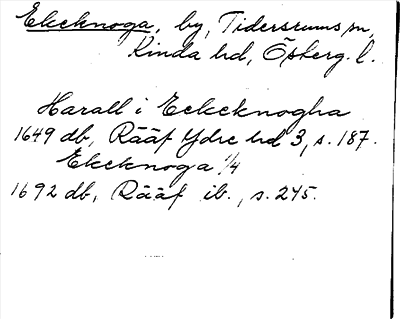 Ekeknoga, by, Tidersrums sn,
Kinda hd, Österg. l.
Harall i Eekeknogha
1649 db, Rääf Ydre hd 3, s. 187.
Ekeknoga 1/4
1692 db, Rääf ib., s. 245.